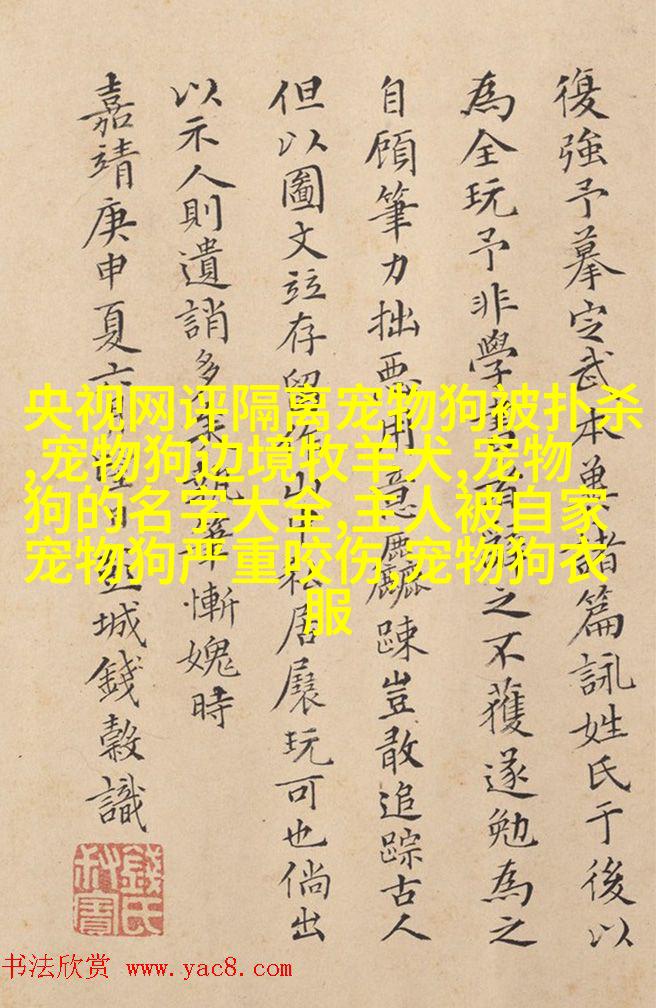 復強予摹定武本諸篇詠姓氏于後以
為全玩予非學之不獲遂勉為之
自顧筆力拙惡用意麤踈豈敢追踪古人
但以圖文竝存留作山中私居展玩可也倘出
以示人則遺誚多矣執筆慚媿時
嘉靖庚申夏六月城錢榖識
錢氏叔寶
央视网评隔离宠物狗被扑杀
,宠物狗边境牧羊犬,宠物
狗的名字大全,主人被自家
宠物狗严重咬伤,宠物狗衣
服
书法欣赏 www.yac8.com